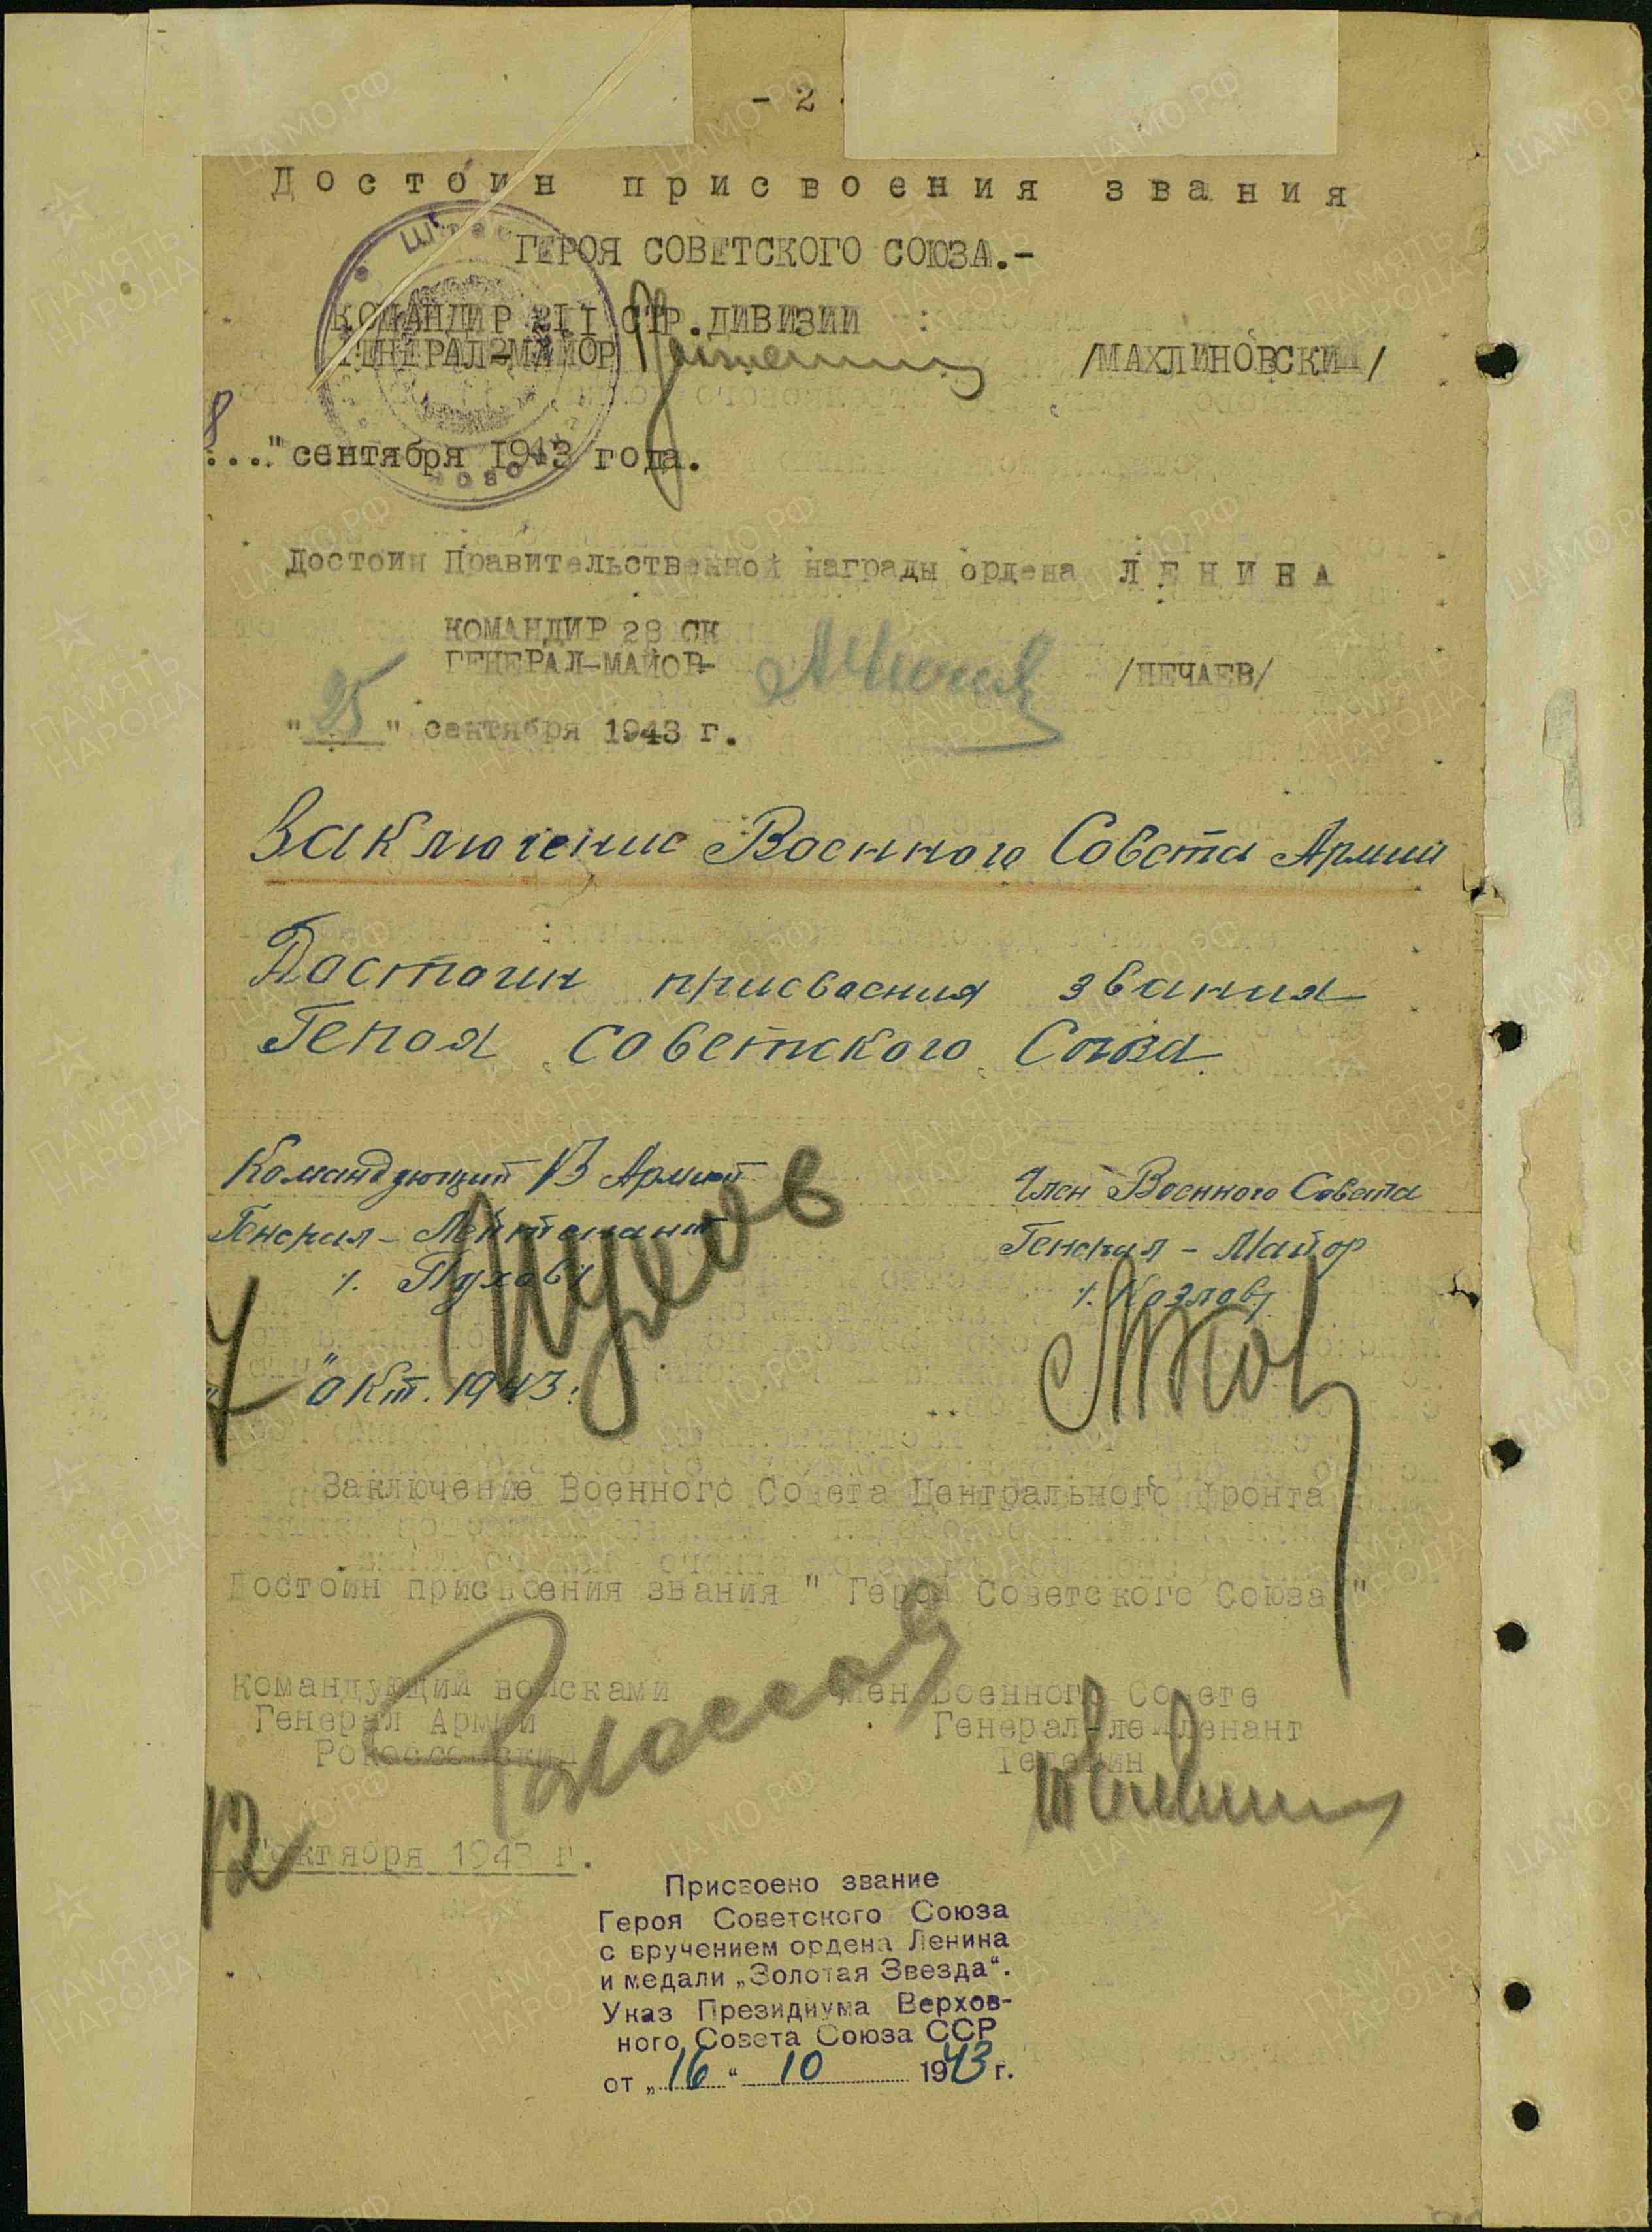 - 2
Достоин присвоения звания
ГЕРОЯ СОВЕТСКОГО СОЮЗА.-
КОМАНДИР 211 СТР.ДИВИЗИИ
ГЕНЕРАЛ-МАЙОР /МАХЛИНОВСКИЙ/
8..." сентября 1943 года.
Достоин Правительственной награды ордена ЛЕНИНА
КОМАНДИР 28 СК
ГЕНЕРАЛ-МАЙОР- /НЕЧАЕВ/
"25" сентября 1943 г.
Заключение Военного Совета Армии
Достоин присвоения звания
Героя Советского Союза
Командующий 13 Армией Член Военного Совета
Генерал-Лейтенант Генерал-Майор
/. Пухов/ /. Козлов/
Пухов
7" Окт. 1943г.
Заключение Военного Совета Центрального фронта
Достоин присвоения звания " Героя Советского Союза "
Командующий войсками Член Военного Совете
Генерал Армии Генерал-лейтенант
Рокоссовский Телегин
12 "октября 1943 г.
Присвоено звание
Героя Советского Союза
с вручением ордена Ленина
и медали „Золотая Звезда“.
Указ Президиума Верхов-
ного Совета Союза ССР
от „16“ 10 1943 г.
ПАМЯТЬ НАРОДА
ЦАМО.РФ